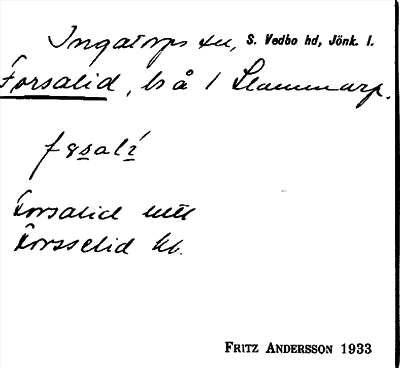 Ingatorps sn, S. Vedbo hd, Jönk. l.
Forsalid, bs å / Stammarp.
fɞsalí
Forsalid
Forsselid kb.
FRITZ ANDERSSON 1933